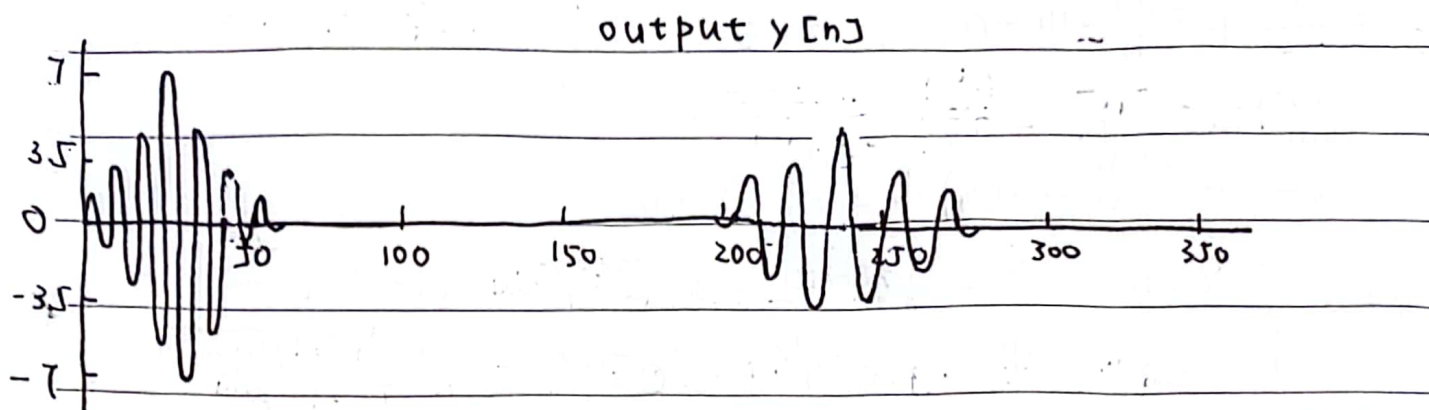 output y[n]
7
35
0
50 100 150 200 250 300 350
-35
-7